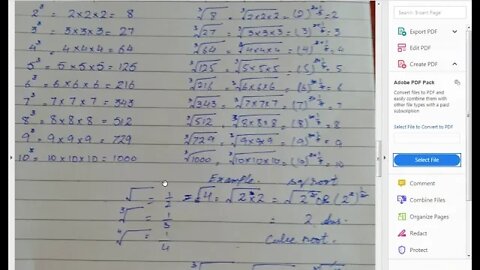 2³ = 2×2×2 = 8
3³ = 3×3×3 = 27
4³ = 4×4×4 = 64
5³ = 5×5×5 = 125
6³ = 6×6×6 = 216
7³ = 7×7×7 = 343
8³ = 8×8×8 = 512
9³ = 9×9×9 = 729
10³ = 10×10×10 = 1000
³√8 = ³√2×2×2 = (2)^3×1/3 = 2
³√27 = ³√3×3×3 = (3)^3×1/3 = 3
³√64 = ³√4×4×4 = (4)^3×1/3 = 4
³√125 = ³√5×5×5 = (5)^3×1/3 = 5
³√216 = ³√6×6×6 = (6)^3×1/3 = 6
³√343 = ³√7×7×7 = (7)^3×1/3 = 7
³√512 = ³√8×8×8 = (8)^3×1/3 = 8
³√729 = ³√9×9×9 = (9)^3×1/3 = 9
³√1000 = ³√10×10×10 = (10)^3×1/3 = 10
Example. sq root
√ = 1/2 = √4 = √2×2 = √2² or (2²)^1/2
³√ = 1/3 = 2 Ans.
⁴√ = 1/4 Cube root.
Export PDF
Edit PDF
Create PDF
Adobe PDF Pack
Convert files to PDF and
easily combine them with
other file types with a paid
subscription
Select File to Convert to PDF
Select File
Comment
Combine Files
Organize Pages
Redact
Protect